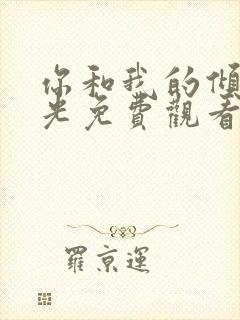 你和我的傾
光免費觀看
羅京運